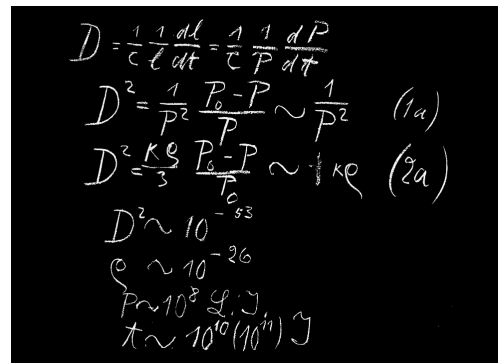 D = 1/c 1/l dl/dt = 1/c 1/P dP/dt
D² = 1/P² P₀-P/P ~ 1/P² (1a)
D² = κρ/3 P₀-P/P₀ ~ 1/3 κρ (2a)
D² ~ 10⁻⁵³
ρ ~ 10⁻²⁶
P ~ 10⁸ L.J.
t ~ 10¹⁰(10¹¹) J